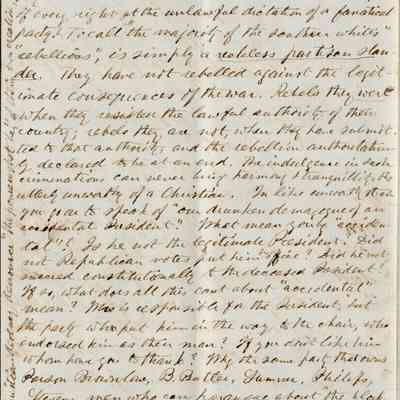 of every right at the unlawful dictation of a fanatical
party? To call "the majority of the southern whites"
"rebellious", is simply a reckless partisan slan-
der. They have not rebelled against the legit-
imate consequences of the war. Rebels they were
when they resisted the lawful authority of their
country; rebels they are not, when they have submit-
ted to that authority and the rebellion authoritative-
ly declared to be at an end. The indulgence in such
criminations can never bring harmony & tranquillity. Its
utterly unworthy of a Christian. In like unworthy
you go on to speak of "our drunken demagogue of an
accidental President". What mean you by "acciden-
tal"? Is he not the legitimate President. Did
not Republican votes put him in office? Did he not
succeed constitutionally to the deceased President?
If so, what does all this cant about "accidental"
mean? Who is responsible for the President, but
the party who put him in the way to the chair, who
endorsed him as their man? If you don't like him
whom have you to thank? Why the same party that owns
Parson Brownlow, B. Butler, Sumner, Philips,
men who can
about the